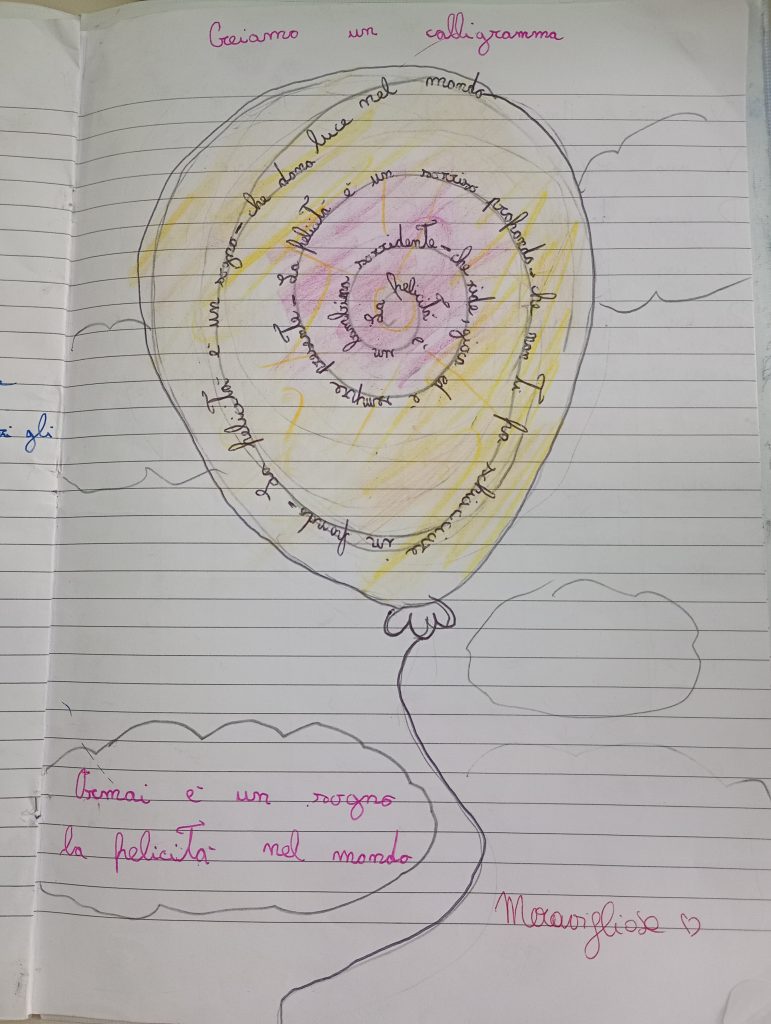 Creiamo un calligramma
La felicità è un bambino sorridente - che ride, gioca ed è sempre presente - La felicità è un sorriso profondo - che non ti fa schiacciare in fondo - La felicità è un sogno - che dona luce nel mondo
gli
Ormai è un sogno
la felicità nel mondo
Meravigliosa ♡